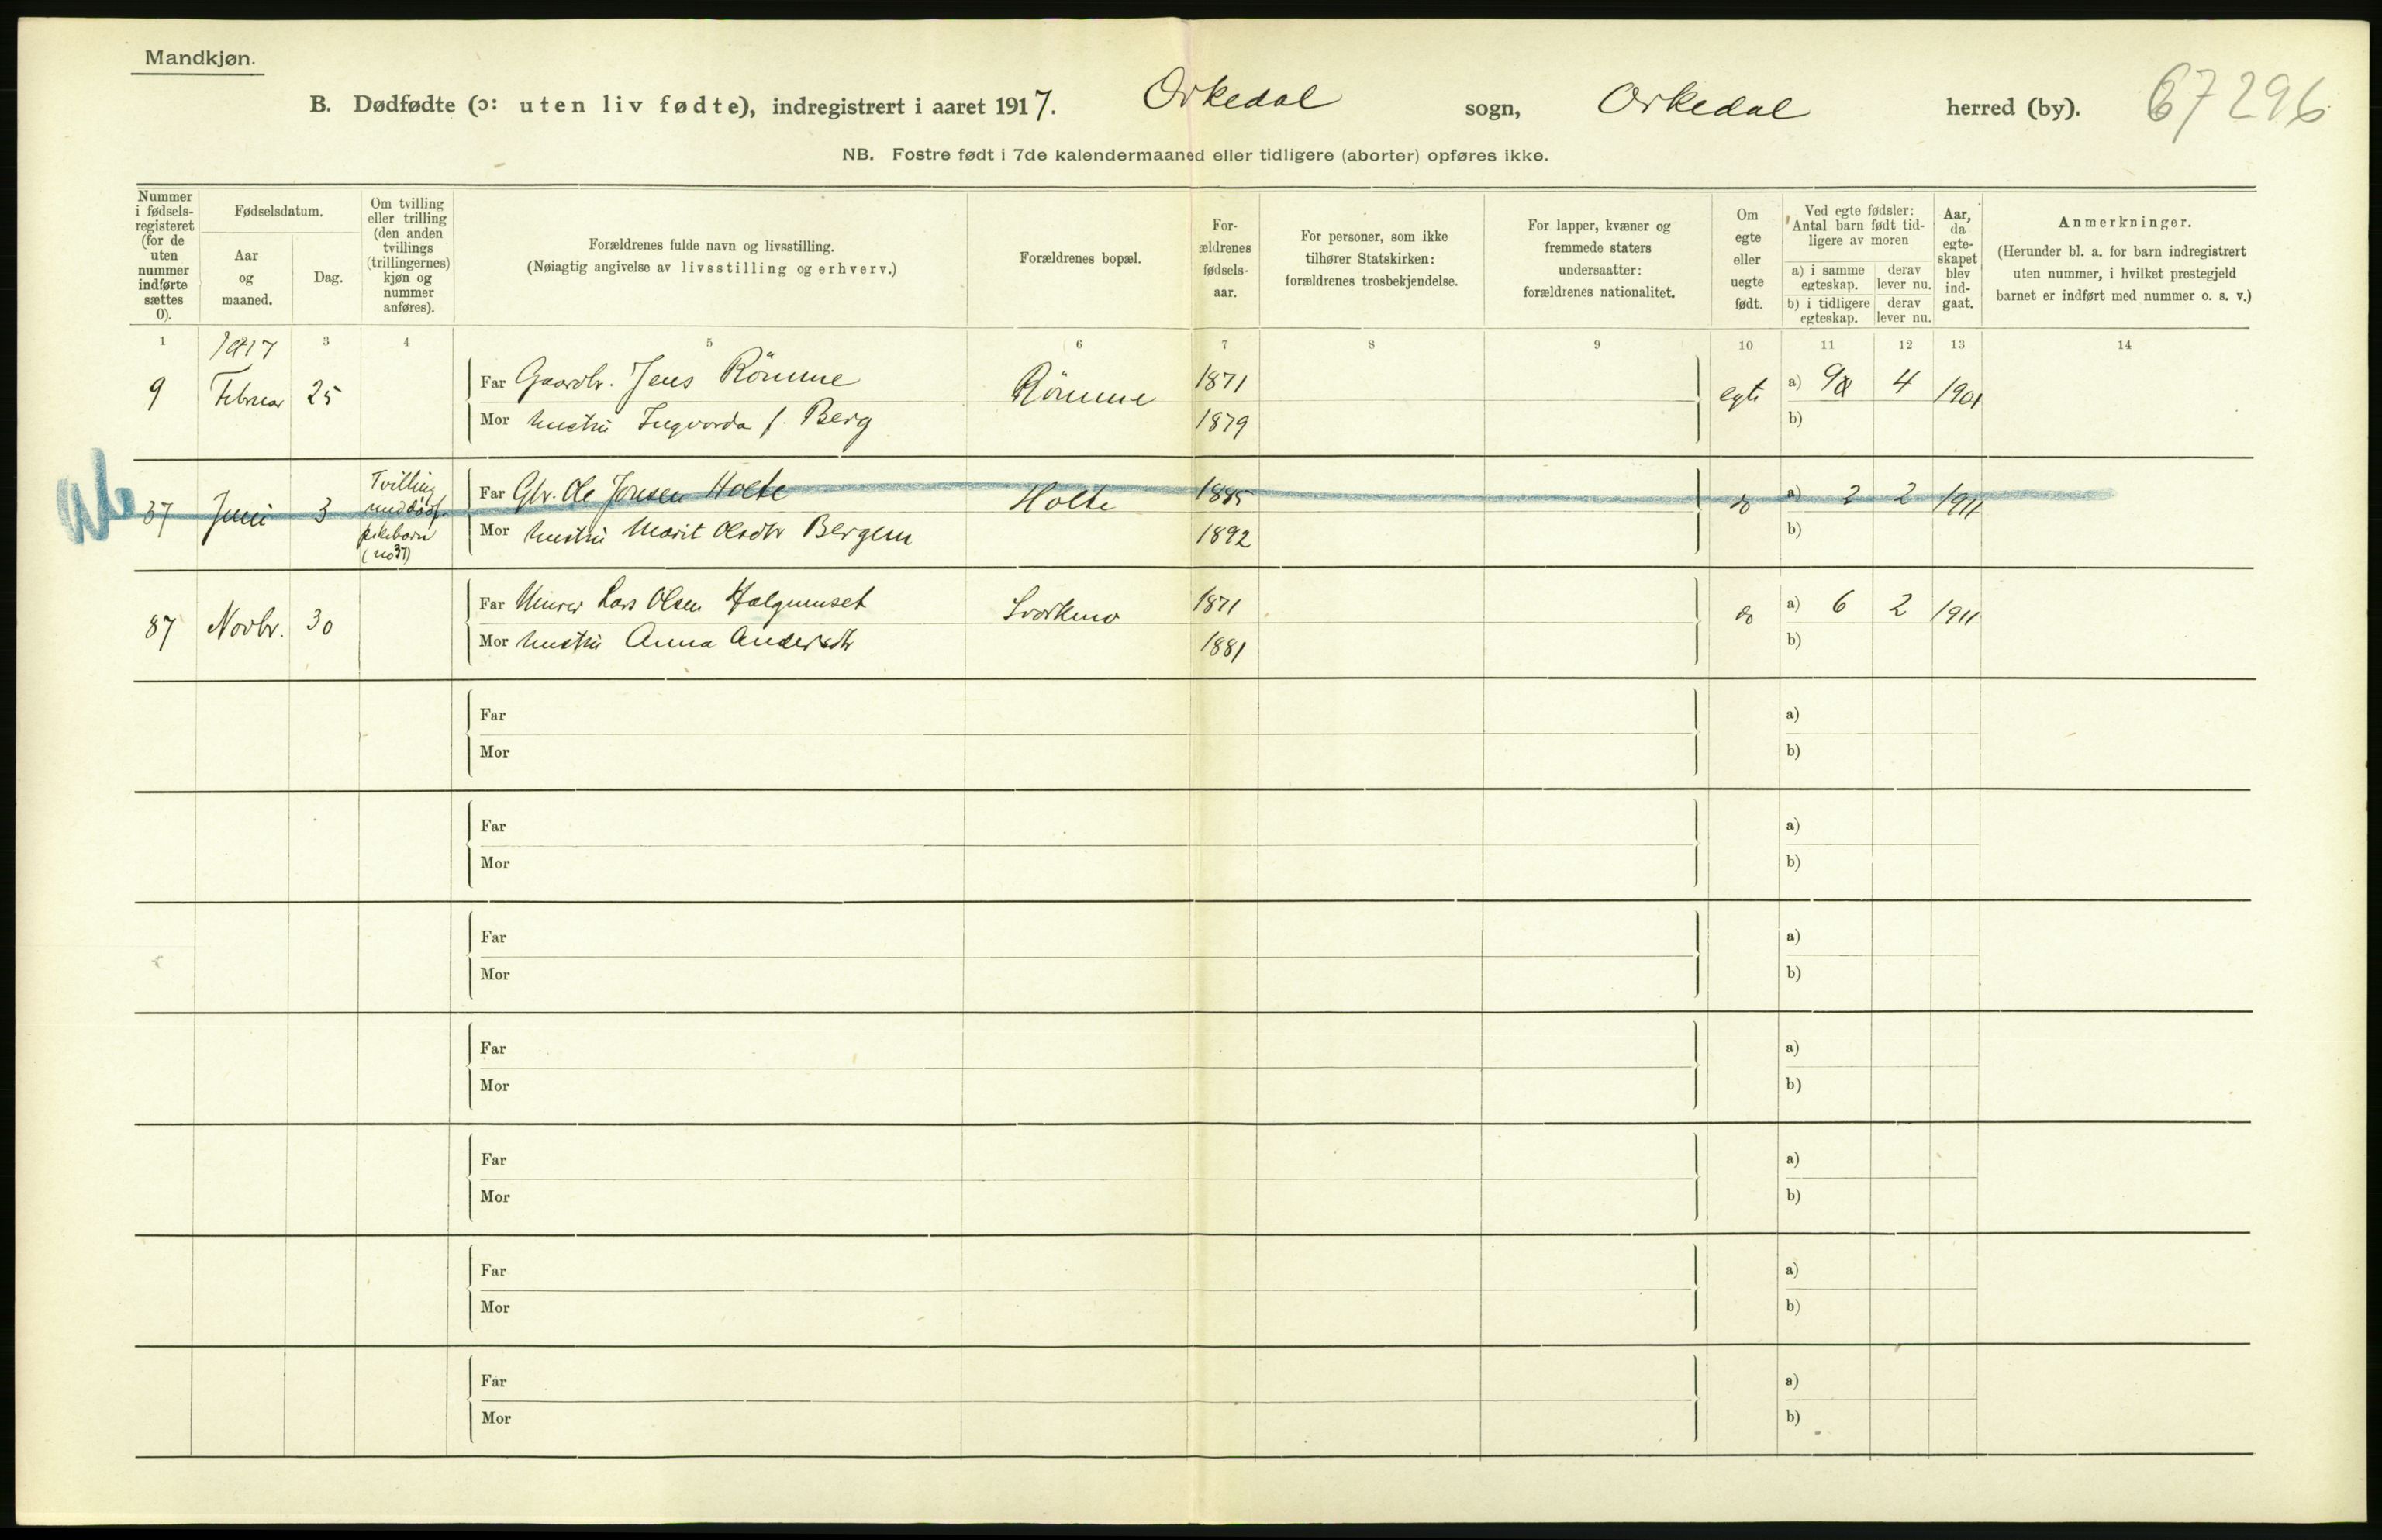 Mandkjøn.
B. Dødfødte (ɔ: uten liv fødte), indregistrert i aaret 1917. Orkedal sogn, Orkedal herred (by). 67 296
NB. Fostre født i 7de kalendermaaned eller tidligere (aborter) opføres ikke.
Nummer i fødsels-registeret (for de uten nummer indførte sættes 0).
Fødselsdatum.
Aar og maaned.
Dag.
Om tvilling eller trilling (den anden tvillings (trillingernes) kjøn og nummer anføres).
Forældrenes fulde navn og livsstilling.
(Nøiagtig angivelse av livsstilling og erhverv.)
Forældrenes bopæl.
For-ældrenes fødsels-aar.
For personer, som ikke tilhører Statskirken: forældrenes trosbekjendelse.
For lapper, kvæner og fremmede staters undersaatter: forældrenes nationalitet.
Om egte eller uegte født.
Ved egte fødsler: Antal barn født tid-ligere av moren
a) i samme egteskap.
derav lever nu.
b) i tidligere egteskap.
derav lever nu.
Aar, da egte-skapet blev ind-gaat.
Anmerkninger.
(Herunder bl. a. for barn indregistrert uten nummer, i hvilket prestegjeld barnet er indført med nummer o. s. v.)
1 3 4 5 6 7 8 9 10 11 12 13 14
1917
9 Februar 25 Far Gaardbr. Jens Römme Römme 1871 egte a) 9 4 1901
Mor hustru Ingvarda f. Berg 1879 b)
37 Juni 3 Tvilling med dødf. pikebarn (no 37) Far Gbr. Ole Jonsen Holte Holte 1885 do a) 2 2 1911
Mor hustru Marit Olsdtr Bergem 1892 b)
87 Novbr. 30 Far Murer Lars Olsen Halgunset Svorkmo 1871 do a) 6 2 1911
Mor hustru Anna Andersdtr 1881 b)
Far a)
Mor b)
Far a)
Mor b)
Far a)
Mor b)
Far a)
Mor b)
Far a)
Mor b)
Far a)
Mor b)
Far a)
Mor b)